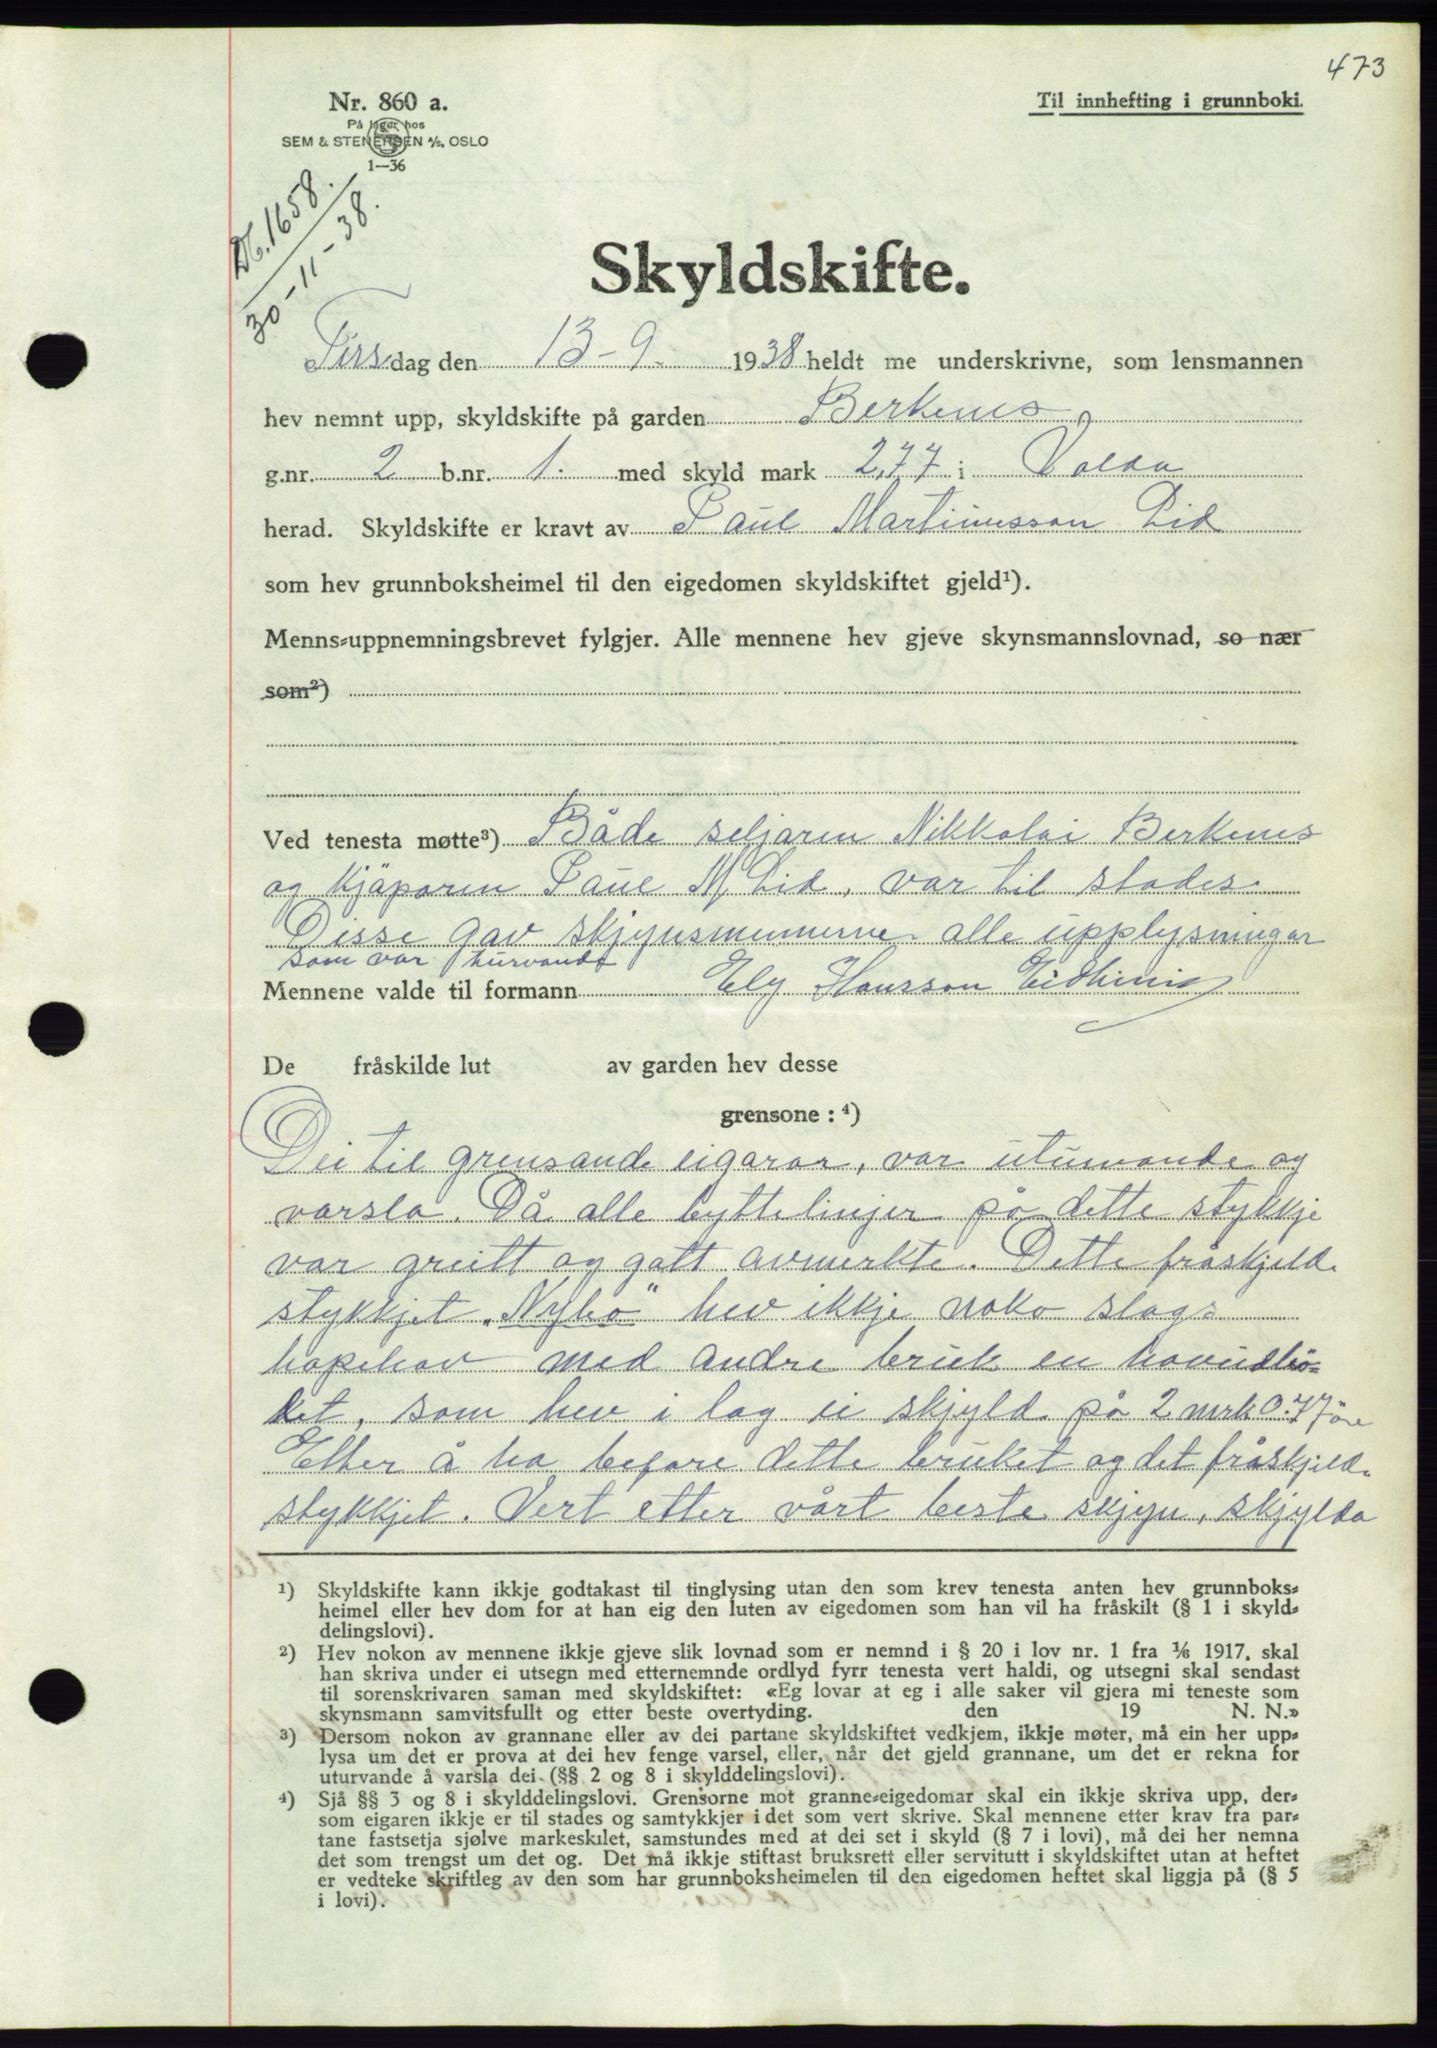 473
Nr. 860 a.
På lager hos
SEM & STENERSEN A/S, OSLO
1—36
Til innhefting i grunnboki.
Db. 1658.
30-11-38.
Skyldskifte.
Tirsdag den 13-9. 1938 heldt me underskrivne, som lensmannen
hev nemnt upp, skyldskifte på garden Berknes,
g.nr. 2 b.nr. 1. med skyld mark 2,77 i Volda
herad. Skyldskifte er kravt av Paul Martinusson Lid
som hev grunnboksheimel til den eigedomen skyldskiftet gjeld¹).
Menns-uppnemningsbrevet fylgjer. Alle mennene hev gjeve skynsmannslovnad, so nær
som²)
Ved tenesta møtte³) Både seljaren Nikkolai Berknes
og kjøparen Paul M Lid, var til stades.
Disse gav skjynsmennerne alle upplysningar
som var turvande
Mennene valde til formann Ely Hansson Eidhimis
De fråskilde lut av garden hev desse
grensone : ⁴)
Dei til grensande eigarar, var uturvande og
varsla. Då alle byttelinjer på dette stykkje
var greitt og gått avmerkte. Dette fråskjeld
stykkjet „Nybø" hev ikkje noko slags
hopehav med andre bruk en hovudbø-
let, som hev i lag ei skjyld på 2 mrk 0.77 öre
Etter å ha befare dette bruket og det fråskjeld
stykkjet. Vert etter vårt beste skjyn, skjylda
¹) Skyldskifte kann ikkje godtakast til tinglysing utan den som krev tenesta anten hev grunnboks-
heimel eller hev dom for at han eig den luten av eigedomen som han vil ha fråskilt (§ 1 i skyld-
delingslovi).
²) Hev nokon av mennene ikkje gjeve slik lovnad som er nemnd i § 20 i lov nr. 1 fra 1/6 1917, skal
han skriva under ei utsegn med etternemnde ordlyd fyrr tenesta vert haldi, og utsegni skal sendast
til sorenskrivaren saman med skyldskiftet: «Eg lovar at eg i alle saker vil gjera mi teneste som
skynsmann samvitsfullt og etter beste overtyding. den 19 N. N.»
³) Dersom nokon av grannane eller av dei partane skyldskiftet vedkjem, ikkje møter, må ein her upp-
lysa um det er prova at dei hev fenge varsel, eller, når det gjeld grannane, um det er rekna for
uturvande å varsla dei (§§ 2 og 8 i skylddelingslovi).
⁴) Sjå §§ 3 og 8 i skylddelingslovi. Grensorne mot granne-eigedomar skal ein ikkje skriva upp, der-
som eigaren ikkje er til stades og samtykkjer i det som vert skrive. Skal mennene etter krav fra par-
tane fastsetja sjølve markeskilet, samstundes med at dei set i skyld (§ 7 i lovi), må dei her nemna
det som trengst um det og. Det må ikkje stiftast bruksrett eller servitutt i skyldskiftet utan at heftet
er vedteke skriftleg av den som har grunnboksheimelen til den eigedomen heftet skal liggja på (§ 5
i lovi).